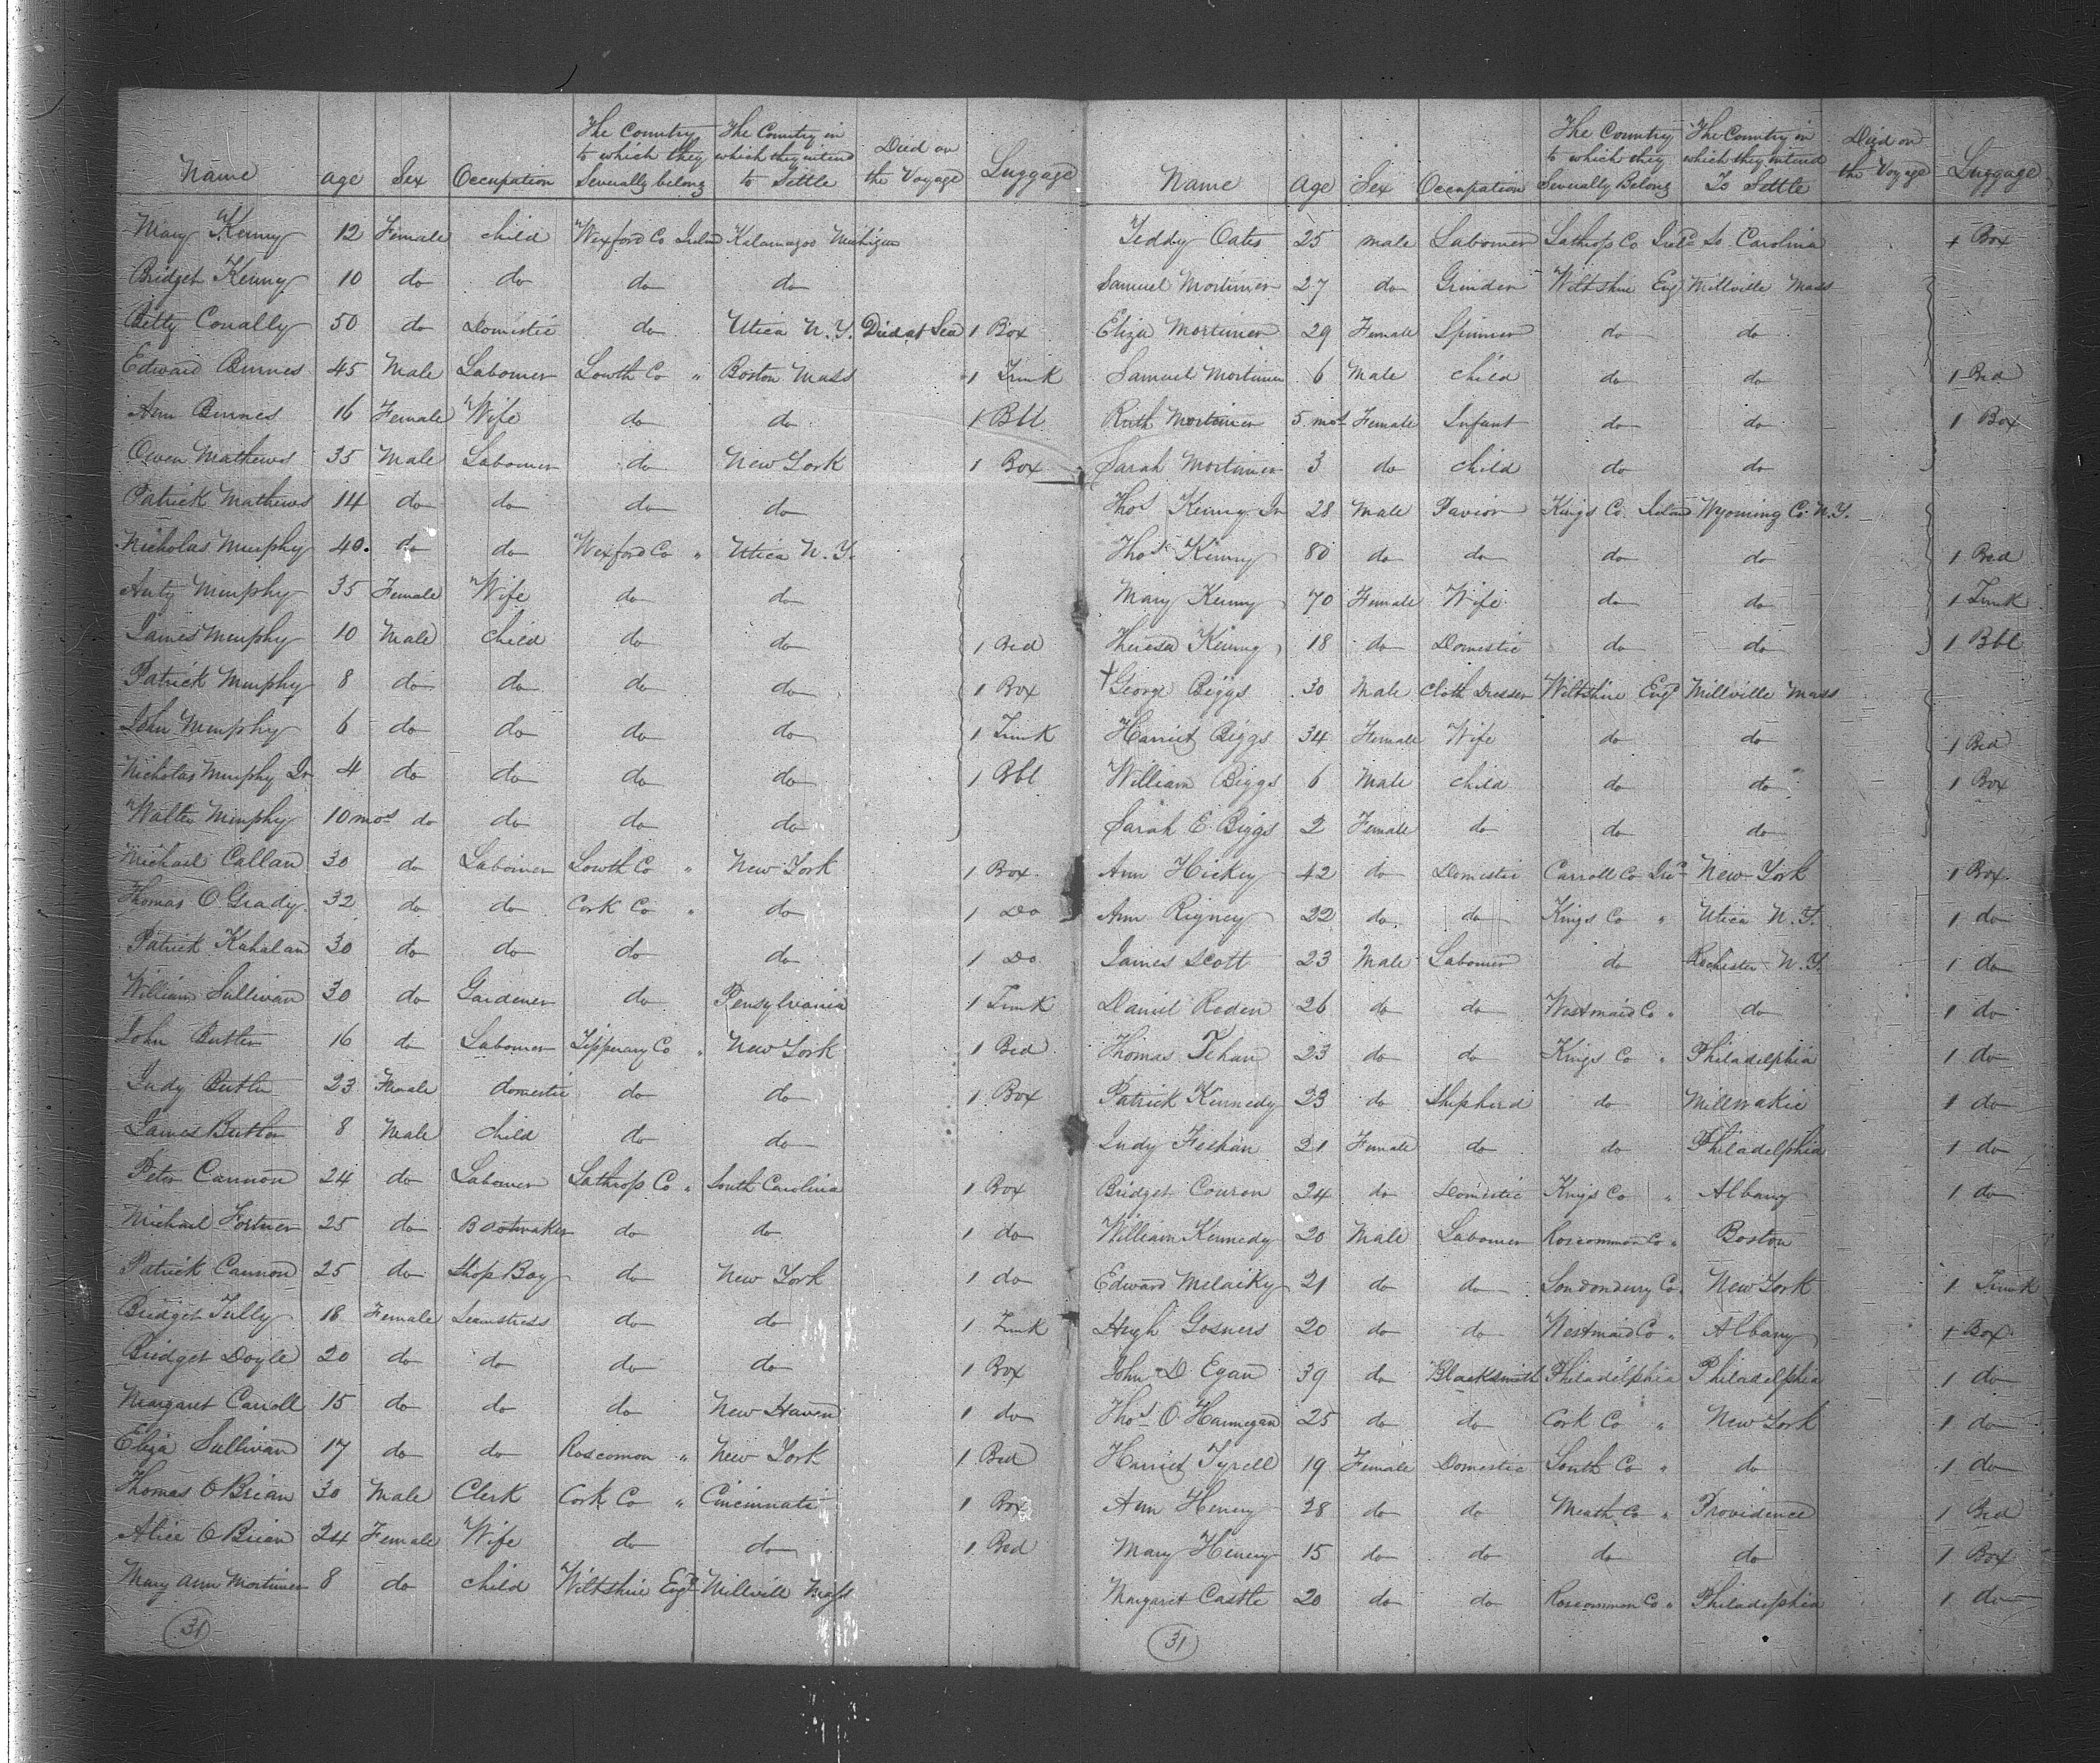 Name age Sex Occupation The Country to which they Severally belong The Country in which they intend to Settle Died on the Voyage Luggage
Mary Kenny 12 Female child Wexford Co Irelnd Kalamazoo Michigan
Bridget Kenny 10 do do do do
Betty Conally 50 do Domestic do Utica N.Y. Died at Sea 1 Box
Edward Burnes 45 Male Labourer Lowth Co " Boston Mass 1 Trunk
Ann Burnes 16 Female Wife do do 1 Bbl
Owen Mathews 35 Male Labourer do New York 1 Box
Patrick Mathews 14 do do do do
Nicholas Murphy 40. do do Wexford Co " Utica N.Y.
Anty Murphy 35 Female Wife do do
James Murphy 10 Male child do do 1 Bed
Patrick Murphy 8 do do do do 1 Box
John Murphy 6 do do do do 1 Trunk
Nicholas Murphy Jr 4 do do do do 1 Bbl
Walter Murphy 10 mos do do do do
Michael Callan 30 do Labourer Lowth Co " New York 1 Box
Thomas O Grady 32 do do Cork Co " do 1 Do
Patrick Kahalan 30 do do do do 1 Do
William Sullivan 30 do Gardener do Pensylvania 1 Trunk
John Butler 16 do Labourer Tipperary Co " New York 1 Bed
Judy Butler 23 Female domestic do do 1 Box
James Butler 8 Male child do do
Peter Cannon 24 do Labourer Lathrop Co " South Carolina 1 Box
Michael Fortner 25 do Bootmaker do do 1 do
Patrick Cannon 25 do Shop Boy do New York 1 do
Bridget Tully 18 Female Seamstress do do 1 Trunk
Bridget Doyle 20 do do do do 1 Box
Margaret Carroll 15 do do do New Haven 1 do
Eliza Sullivan 17 do do Roscomon " New York 1 Bed
Thomas O Brian 30 Male Clerk Cork Co " Cincinnati 1 Box
Alice O Brian 24 Female Wife do do 1 Bed
Mary Ann Mortimer 8 do child Wiltshire Engd Millvill Mass
31
Name Age Sex Occupation The Country to which they Severally Belong The Country in which they intend To Settle Died on the Voyage Luggage
Teddy Oates 25 male Labourer Lathrop Co Ireld So. Carolina 1 Box
Samuel Mortimer 27 do Grinder Wiltshire Eng Millville Mass
Eliza Mortimer 29 Female Spinner do do
Samuel Mortimer 6 Male child do do 1 Bed
Ruth Mortimer 5 mos Female Infant do do 1 Box
Sarah Mortimer 3 do child do do
Thos Kenny Jr 28 Male Pavior Kings Co. Irelnd Wyoming Co. N.Y.
Thos Kenny 80 do do do do 1 Bed
Mary Kenny 70 Female Wife do do 1 Trunk
Theresa Kenny 18 do Domestic do do 1 Bbl
George Biggs 30 Male Cloth Dresser Wiltshire Engd Millville Mass
Harriet Biggs 34 Female Wife do do 1 Bed
William Biggs 6 Male child do do 1 Box
Sarah E. Biggs 2 Female do do do
Ann Hickey 42 do Domestic Carroll Co Ire New York 1 Box
Ann Rigney 22 do do Kings Co " Utica N.Y. 1 do
James Scott 23 Male Labourer do Rochester N.Y. 1 do
Daniel Roden 26 do do Westmaid Co " do 1 do
Thomas Tehan 23 do do Kings Co " Philadelphia 1 do
Patrick Kennedy 23 do Shepherd do Millwakie 1 do
Judy Feehan 21 Female do do Philadelphia 1 do
Bridget Couron 24 do Domestic Kings Co " Albany 1 do
William Kennedy 20 Male Labourer Roscommon Co " Boston
Edward Melaiky 21 do do Londonderry Co. New York 1 Trunk
Hugh Gosners 20 do do Westmaid Co " Albany 1 Box
John D Egan 39 do Blacksmith Philadelphia Philadelphia 1 do
Thos O. Hannegan 25 do do Cork Co " New York 1 do
Harriet Tyrell 19 Female Domestic Louth Co " do 1 do
Ann Henry 28 do do Meath Co " Providence 1 Bed
Mary Henery 15 do do do do 1 Box
Margaret Castle 20 do do Roscommon Co " Philadelphia 1 do
31